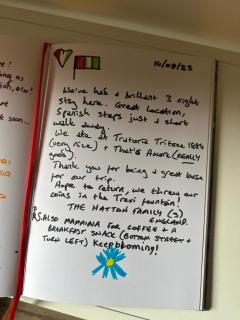 !
ng as
tion, also!
ere
t soon...
14/08/23
We've had a brilliant 3 night
stay here. Great location,
Spanish steps just a short
walk away.
We ate at Tratoria Tritone 1884
(very nice) + That's Amore (REALLY
good).
Thank you for being a great base
for our trip.
Hope to return, we threw our
coins in the Trevi fountain!
THE HATTON FAMILY (5)
ENGLAND.
PS ALSO MAMMINA FOR COFFEE + A
BREAKFAST SNACK (BOTTOM STREET +
TURN LEFT) Keep blooming!